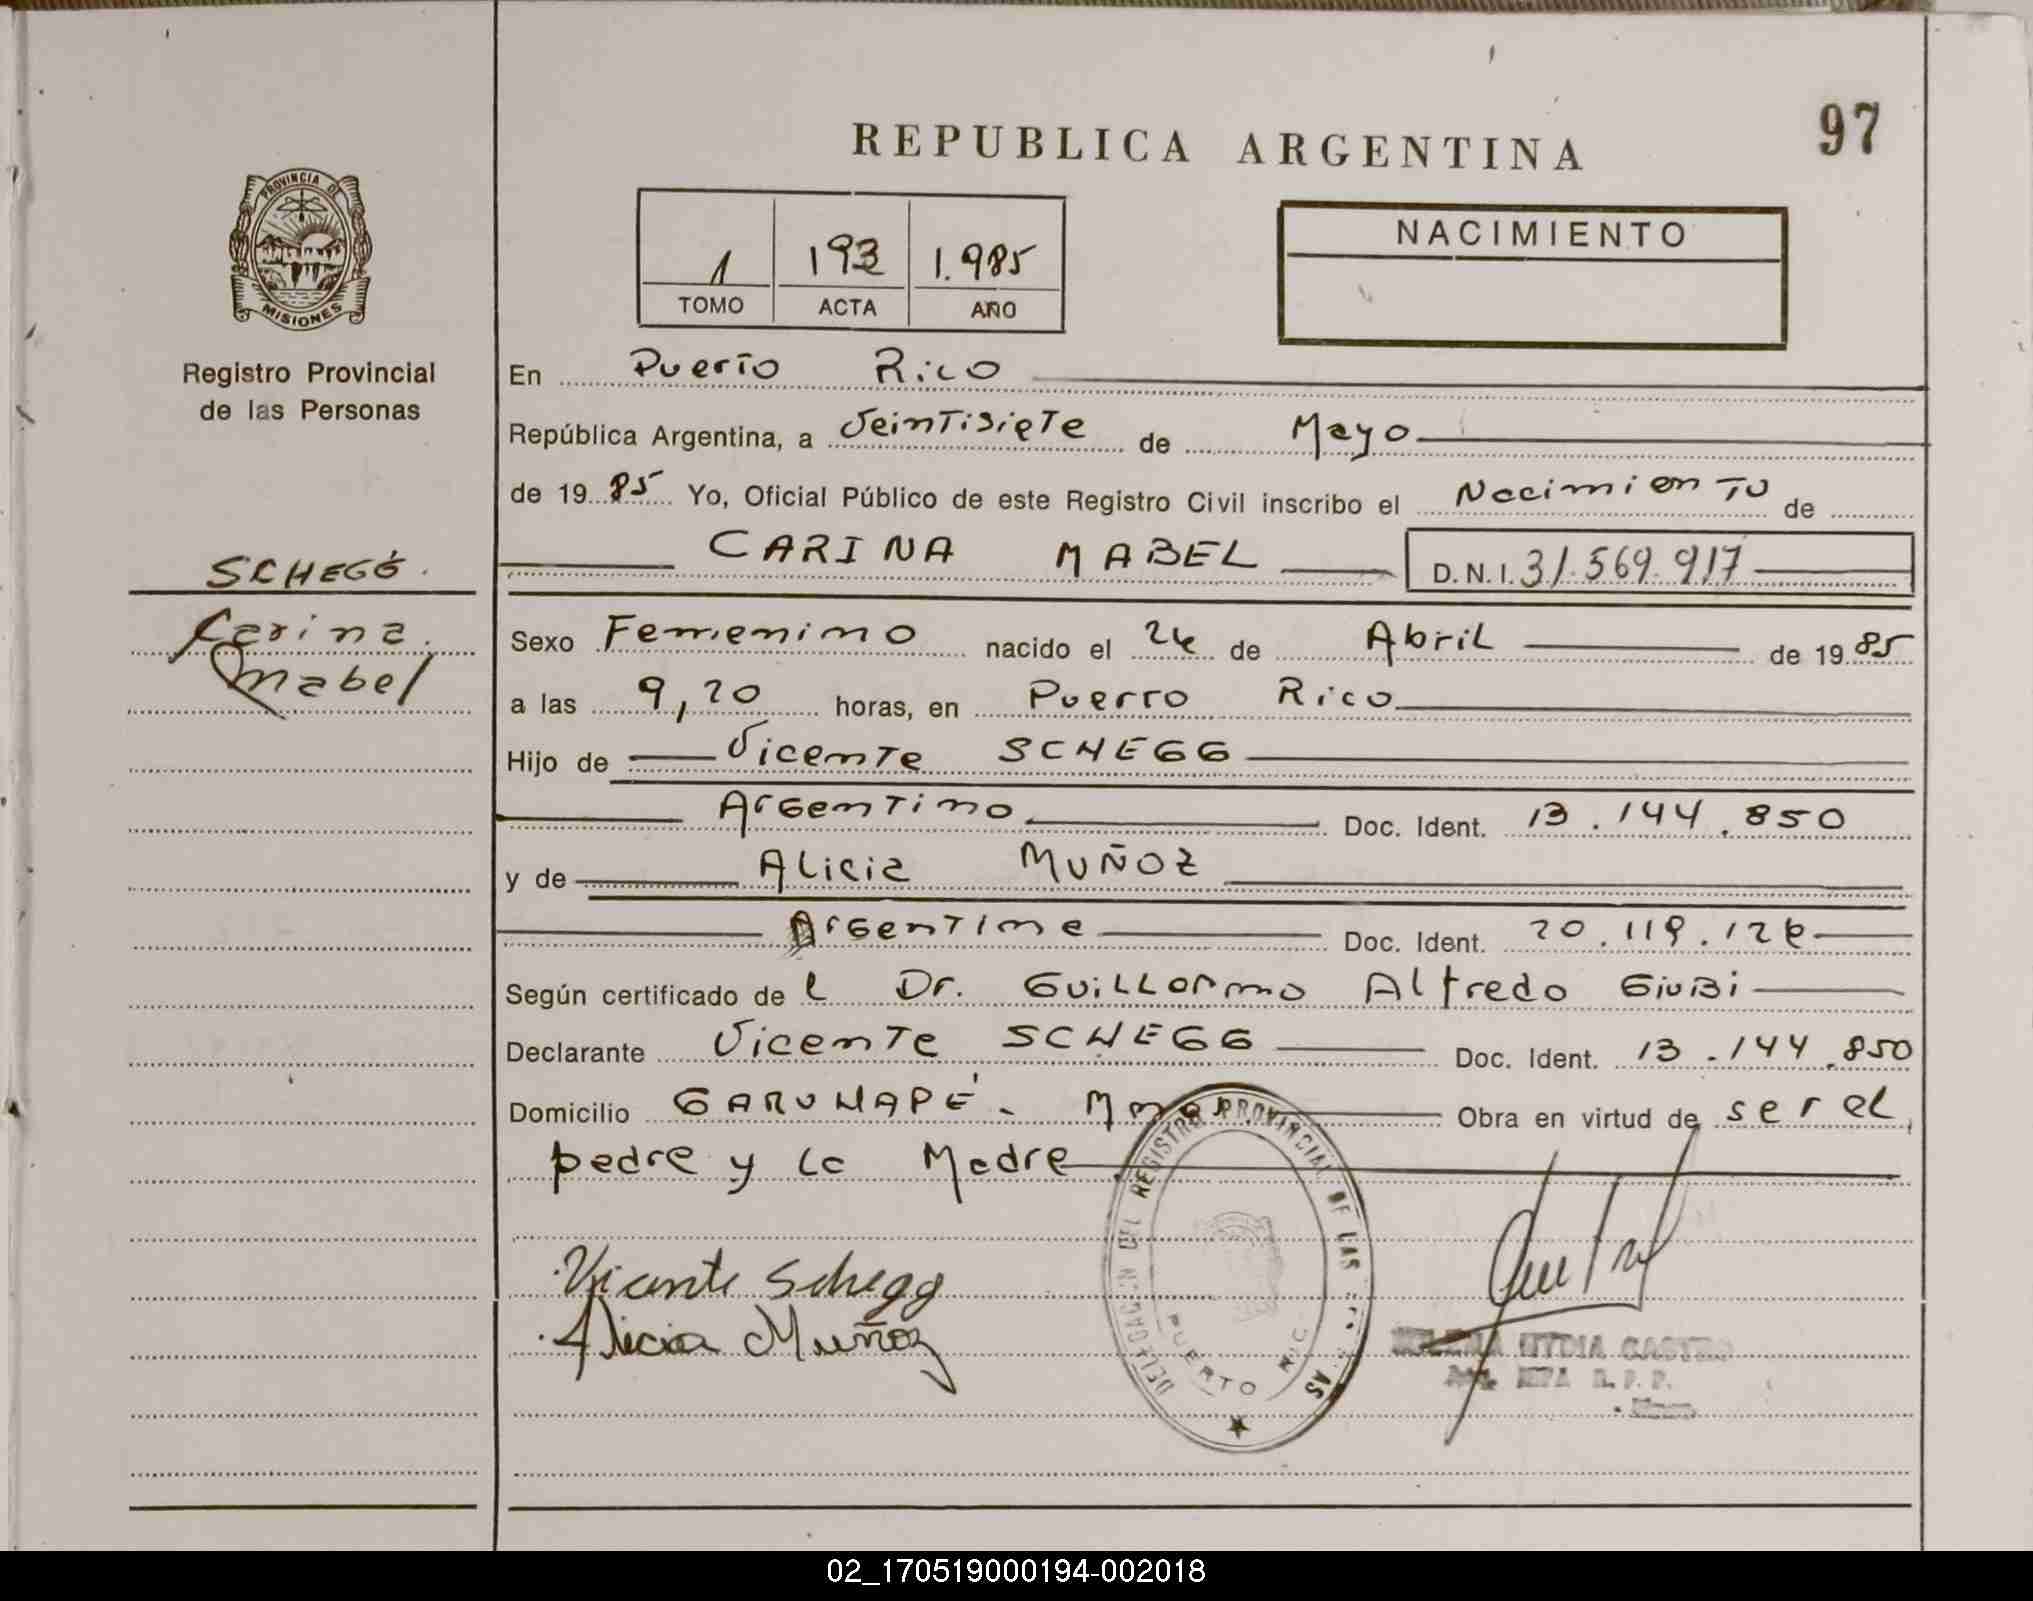 97
REPUBLICA ARGENTINA
PROVINCIA DE
MISIONES
Registro Provincial
de las Personas
1 193 1.985
TOMO ACTA AÑO
NACIMIENTO
En Puerto Rico
República Argentina, a Veintisiete de Mayo
de 1985 Yo, Oficial Público de este Registro Civil inscribo el Nacimiento de
CARINA MABEL D.N.I. 31.569.917
SCHEGG.
Carina
Mabel
Sexo Femenino nacido el 24 de Abril de 1985
a las 9,20 horas, en Puerto Rico
Hijo de Vicente SCHEGG
Argentino Doc. Ident. 13.144.850
y de Alicia MUÑOZ
Argentina Doc. Ident. 20.119.
Según certificado del Dr. Guillermo Alfredo
Declarante Vicente SCHEGG Doc. Ident. 13.144.850
Domicilio GARUHAPÉ - Obra en virtud de ser el
padre y la Madre
DELEGACION DEL REGISTRO PROVINCIAL DE LAS
PUERTO
Vicente Schegg
Alicia Muñoz
CASTRO
R.P.P.
02_170519000194-002018